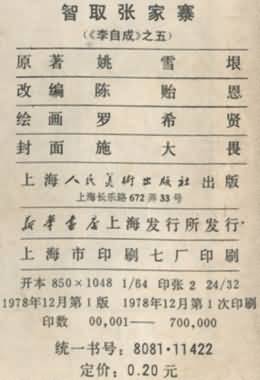 智取张家寨
(《李自成》之五)
原著 姚雪垠
改编 陈贻恩
绘画 罗希贤
封面 施大畏
上海人民美術出版社出版
上海长乐路672弄33号
新华書店上海发行所发行
上海市印刷七厂印刷
开本 850×1048 1/64 印张 2 24/32
1978年12月第1版 1978年12月第1次印刷
印数 00,001—— 700,000
统一书号: 8081·11422
定价: 0.20 元